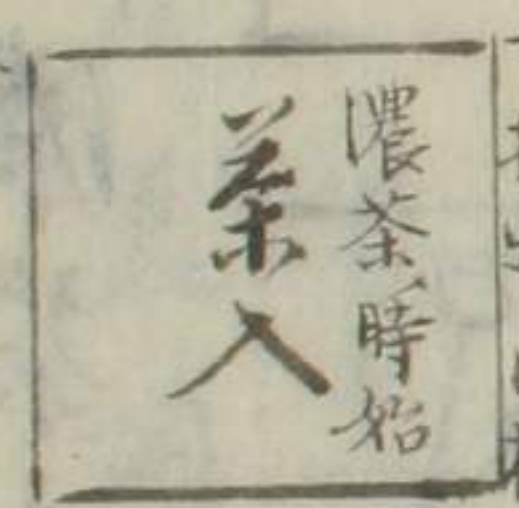 濃茶時始
茶入